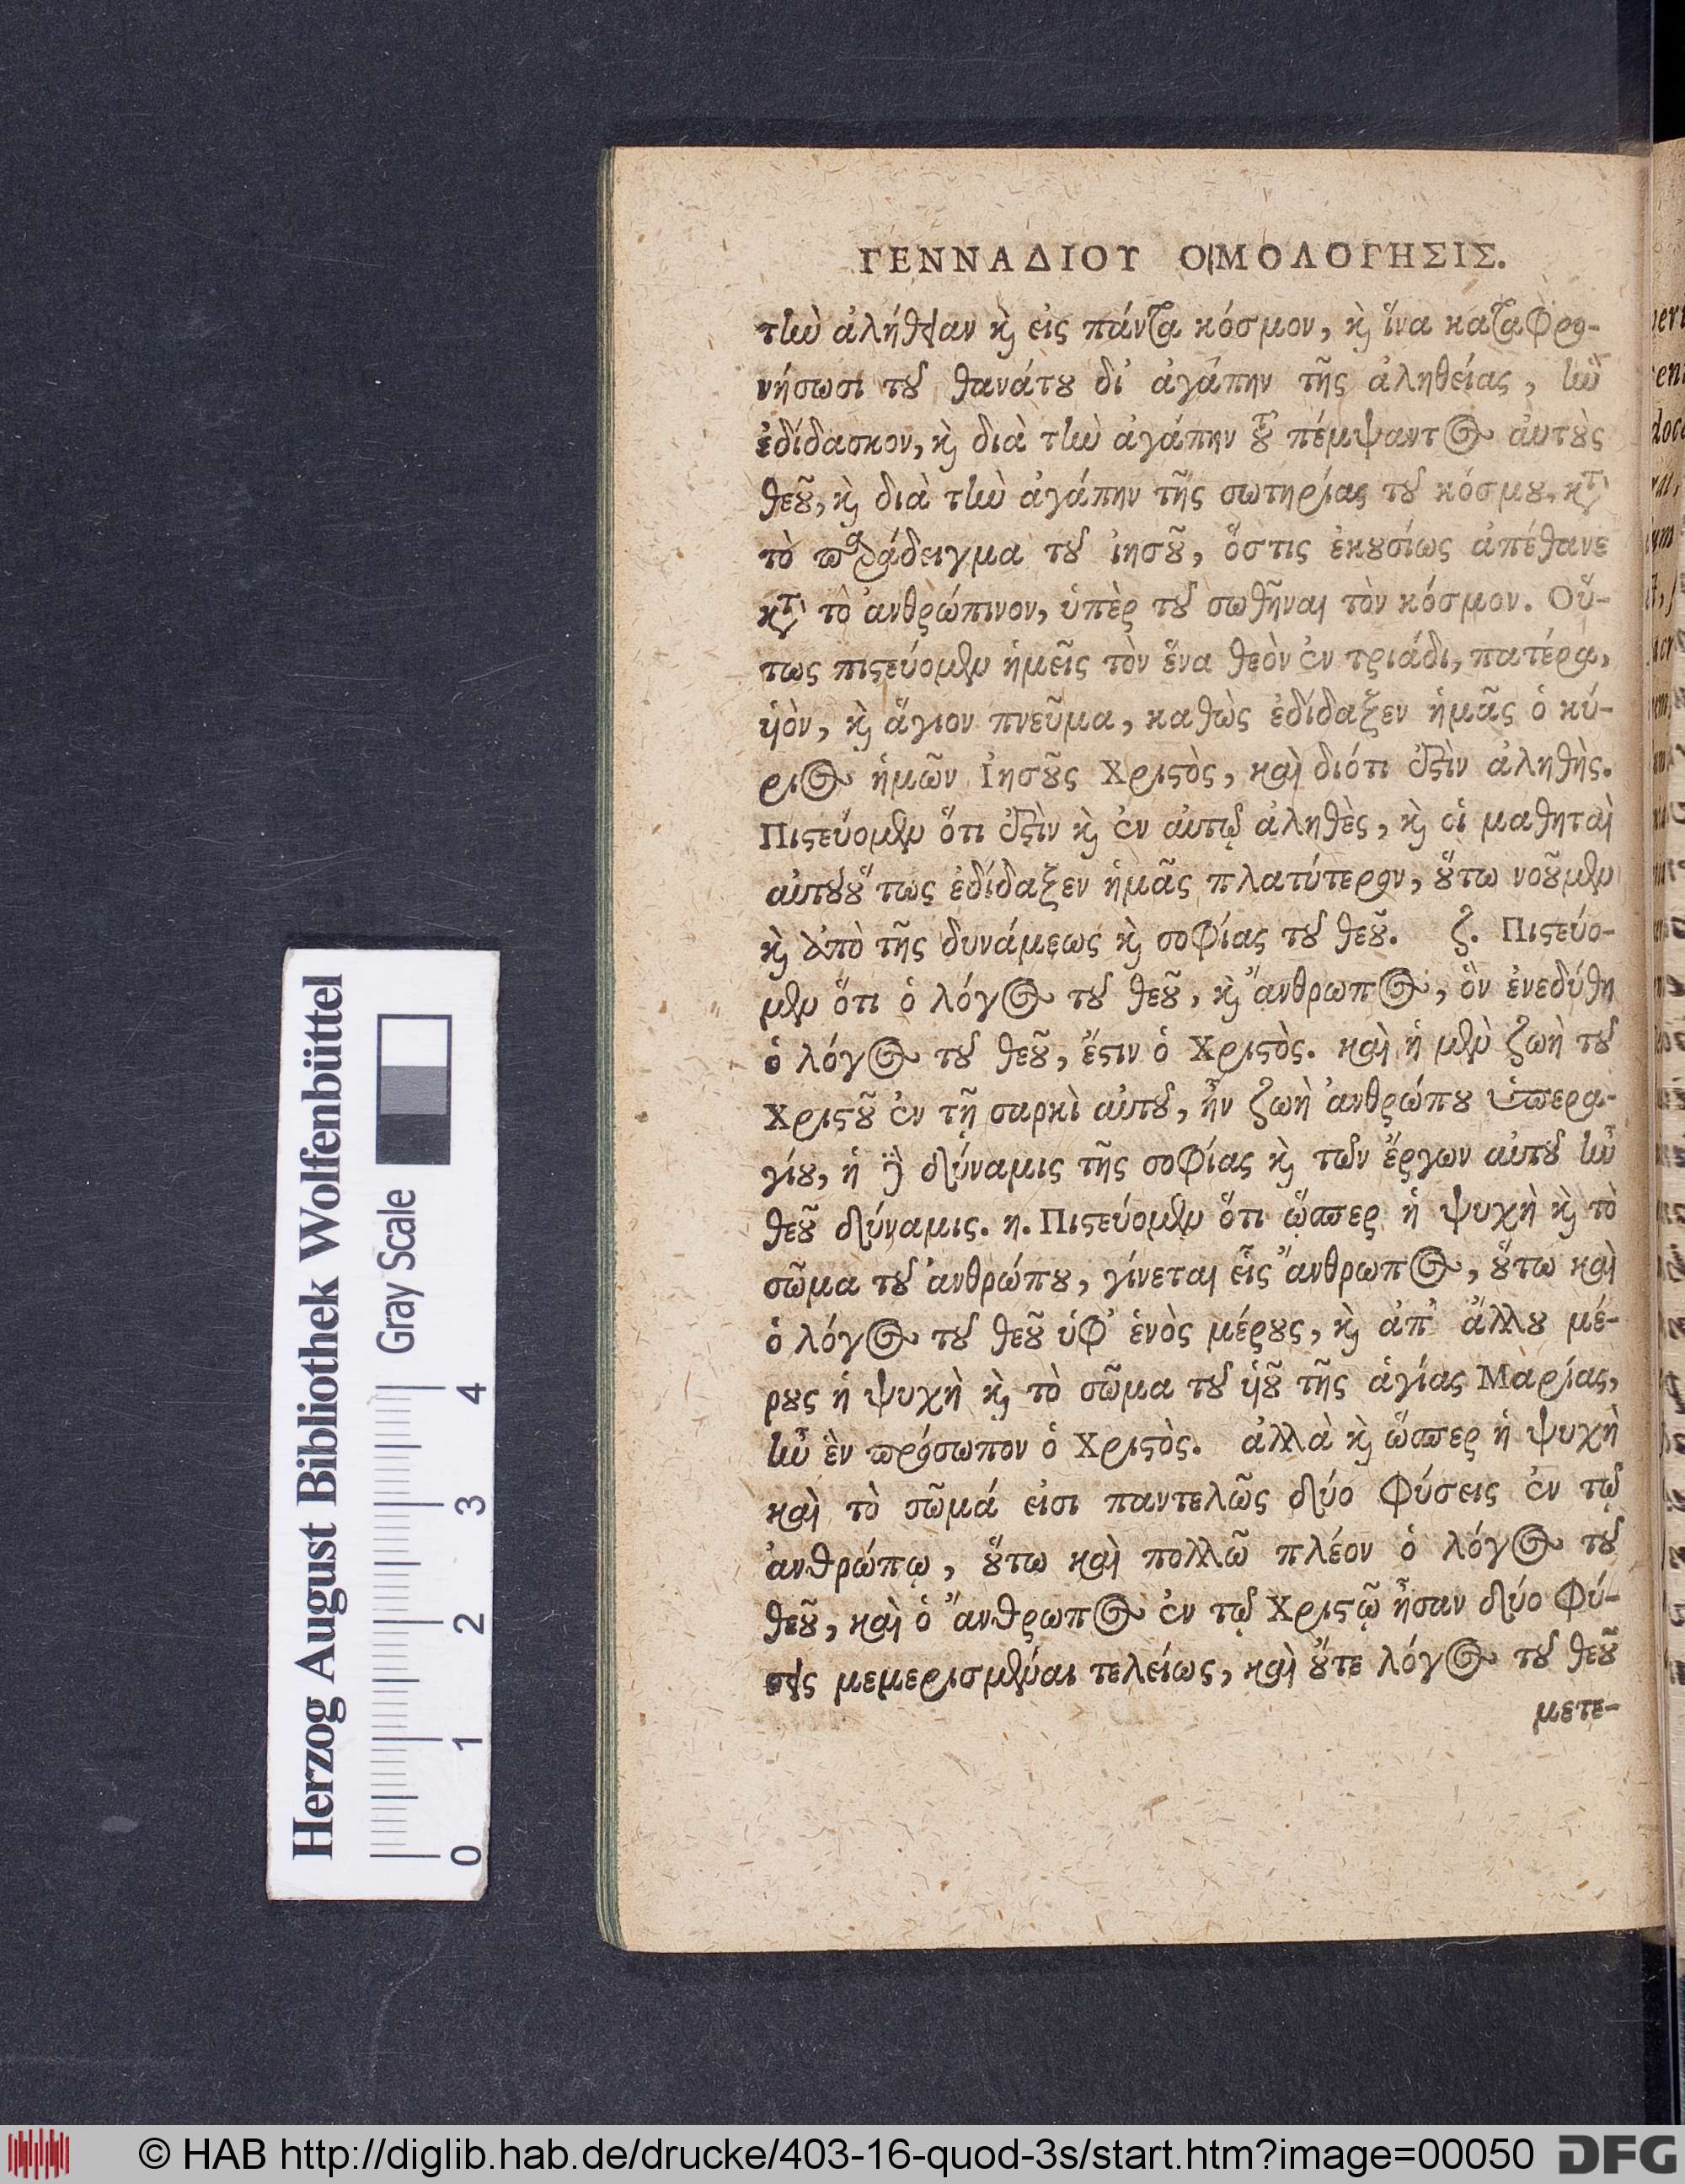 ΓΕΝΝΑΔΙΟΥ ΟΜΟΛΟΓΗΣΙΣ.
τὴν ἀλήθειαν καὶ εἰς πάντα κόσμον, καὶ ἵνα καταφρο-
νήσωσι τοῦ θανάτου δι᾽ ἀγάπην τῆς ἀληθείας, ἣν
ἐδίδασκον, καὶ διὰ τὴν ἀγάπην τοῦ πέμψαντος αὐτοὺς
θεοῦ, καὶ διὰ τὴν ἀγάπην τῆς σωτηρίας τοῦ κόσμου, κατὰ
τὸ παράδειγμα τοῦ ἰησοῦ, ὅστις ἑκουσίως ἀπέθανε
κατὰ τὸ ἀνθρώπινον, ὑπὲρ τοῦ σωθῆναι τὸν κόσμον. Οὕ-
τως πιστεύομεν ἡμεῖς τὸν ἕνα θεὸν ἐν τριάδι, πατέρα,
υἱὸν, καὶ ἅγιον πνεῦμα, καθὼς ἐδίδαξεν ἡμᾶς ὁ κύ-
ριος ἡμῶν Ἰησοῦς Χριστὸς, καὶ διότι ἐστὶν ἀληθὴς.
Πιστεύομεν ὅτι ἐστὶν καὶ ἐν αὐτῷ ἀληθὲς, καὶ οἱ μαθηταὶ
αὐτοῦ οὕτως ἐδίδαξεν ἡμᾶς πλατύτερον, οὕτω νοοῦμεν
καὶ ἀπὸ τῆς δυνάμεως καὶ σοφίας τοῦ θεοῦ. ζ. Πιστεύο-
μεν ὅτι ὁ λόγος τοῦ θεοῦ, καὶ ἄνθρωπος, ὃν ἐνεδύθη
ὁ λόγος τοῦ θεοῦ, ἔστιν ὁ Χριστὸς. καὶ ἡ μὲν ζωὴ τοῦ
Χριστοῦ ἐν τῇ σαρκὶ αὐτοῦ, ἦν ζωὴ ἀνθρώπου ὑπερα-
γίου, ἡ δὲ δύναμις τῆς σοφίας καὶ τῶν ἔργων αὐτοῦ ἦν
θεοῦ δύναμις. η. Πιστεύομεν ὅτι ὥσπερ ἡ ψυχὴ καὶ τὸ
σῶμα τοῦ ἀνθρώπου, γίνεται εἷς ἄνθρωπος, οὕτω καὶ
ὁ λόγος τοῦ θεοῦ ὑφ᾽ ἑνὸς μέρους, καὶ ἀπ᾽ ἄλλου μέ-
ρους ἡ ψυχὴ καὶ τὸ σῶμα τοῦ υἱοῦ τῆς ἁγίας Μαρίας,
ἦν ἓν πρόσωπον ὁ Χριστὸς. ἀλλὰ καὶ ὥσπερ ἡ ψυχὴ
καὶ τὸ σῶμά εἰσι παντελῶς δύο φύσεις ἐν τῷ
ἀνθρώπῳ, οὕτω καὶ πολλῶ πλέον ὁ λόγος τοῦ
θεοῦ, καὶ ὁ ἄνθρωπος ἐν τῷ Χριστῷ ἦσαν δύο φύ-
σεις μεμερισμέναι τελείως, καὶ οὔτε λόγος τοῦ θεοῦ
μετε-
Herzog August Bibliothek Wolfenbüttel
Gray Scale
0 1 2 3 4
© HAB http://diglib.hab.de/drucke/403-16-quod-3s/start.htm?image=00050
DFG